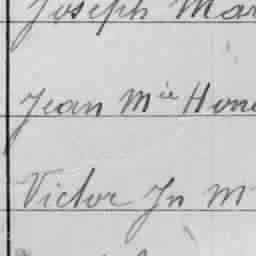 Joseph Mar
Jean Mie Hono
Victor Jn M